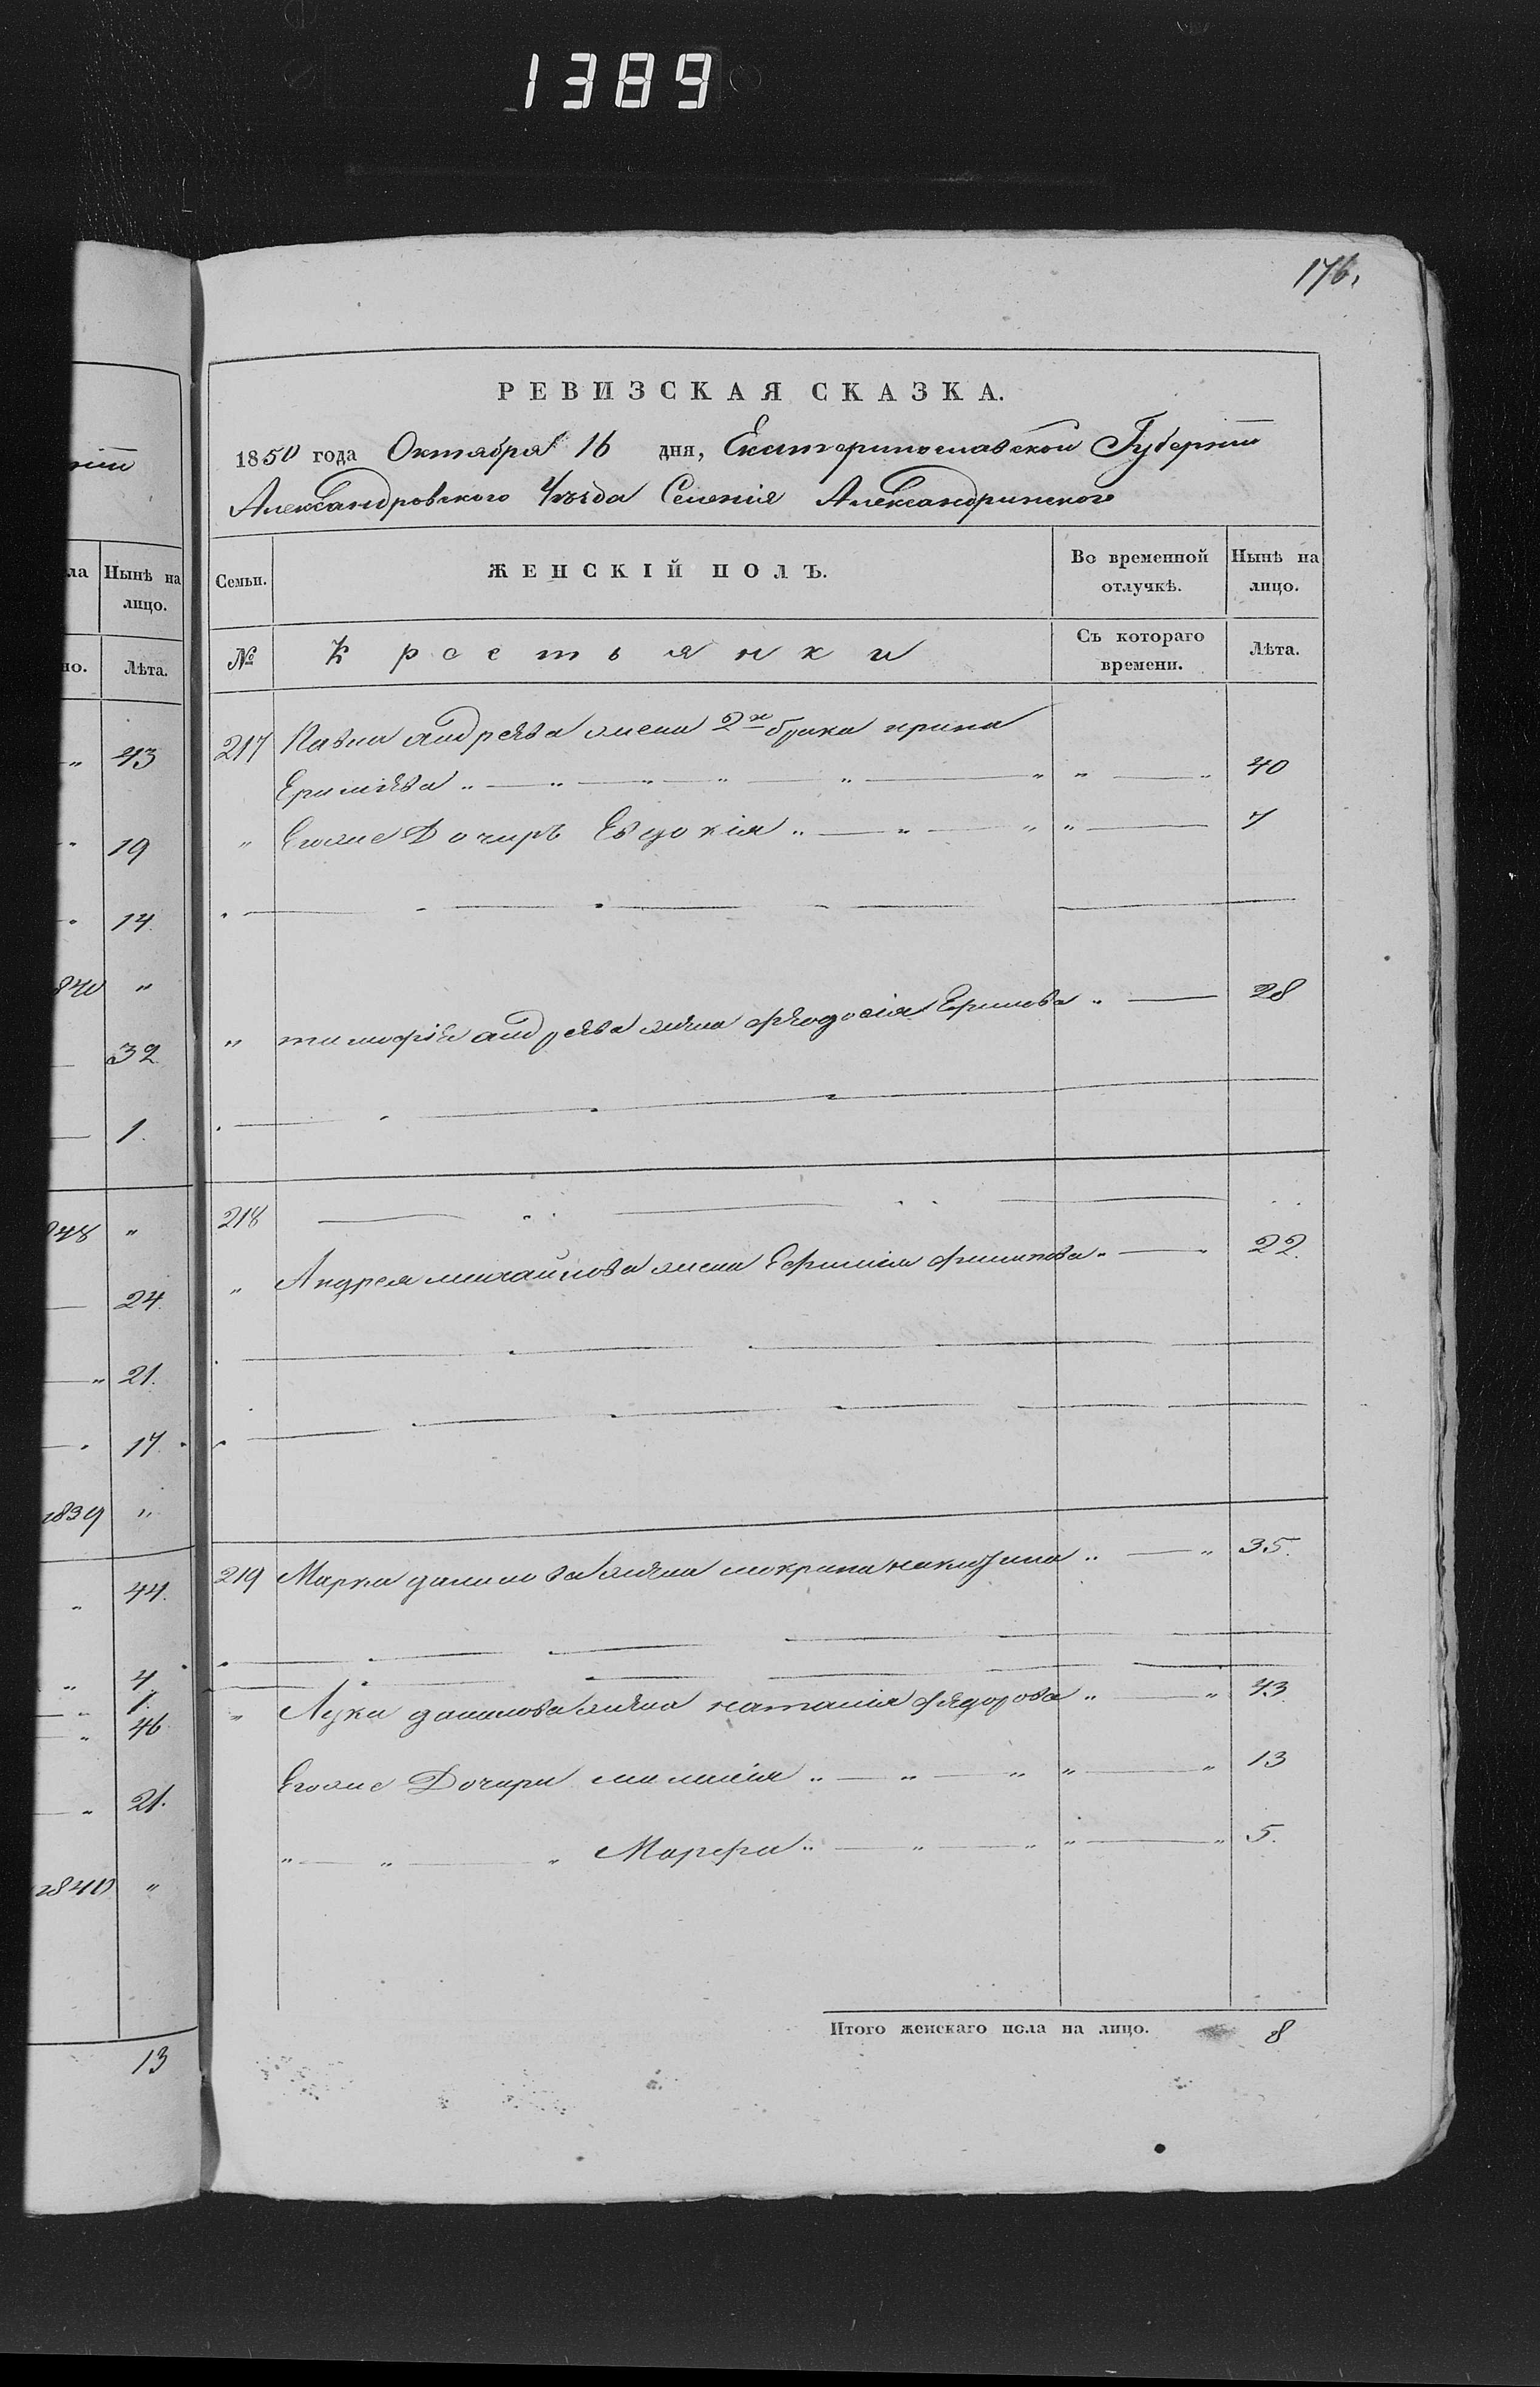 1389
176.
РЕВИЗСКАЯ СКАЗКА.
1850 года Октября 16 дня, Екатеринославской Губерніи
Александровского Уѣзда Селенія Александринского
Семьи. ЖЕНСКІЙ ПОЛЪ. Во временной отлучкѣ. Нынѣ на лицо.
№ Крестьянки Съ котораго времени. Лѣта.
217 Павла андрѣева жена 2го брака ирина
Еримѣва 40
" Егоже Дочирь Евдокія 7
" тимофѣя андрѣева жена фѣодосія Еримова " 28
218
" Андрея михайлова жена Ефимия филипова " 22.
219 Марка данилова жена мокрина " 35.
" Луки данилова жена наталия фѣдорова " 43
Егоже Дочери мелания " 13
" Марфа " 5.
Итого женскаго пола на лицо. 8
ніи
ла Нынѣ на лицо.
но. Лѣта.
" 43
" 19
" 14.
840 "
32
1.
848 "
24.
" 21.
17.
1839 "
" 44.
" 4
" 1.
" 46
" 21.
1840 "
13